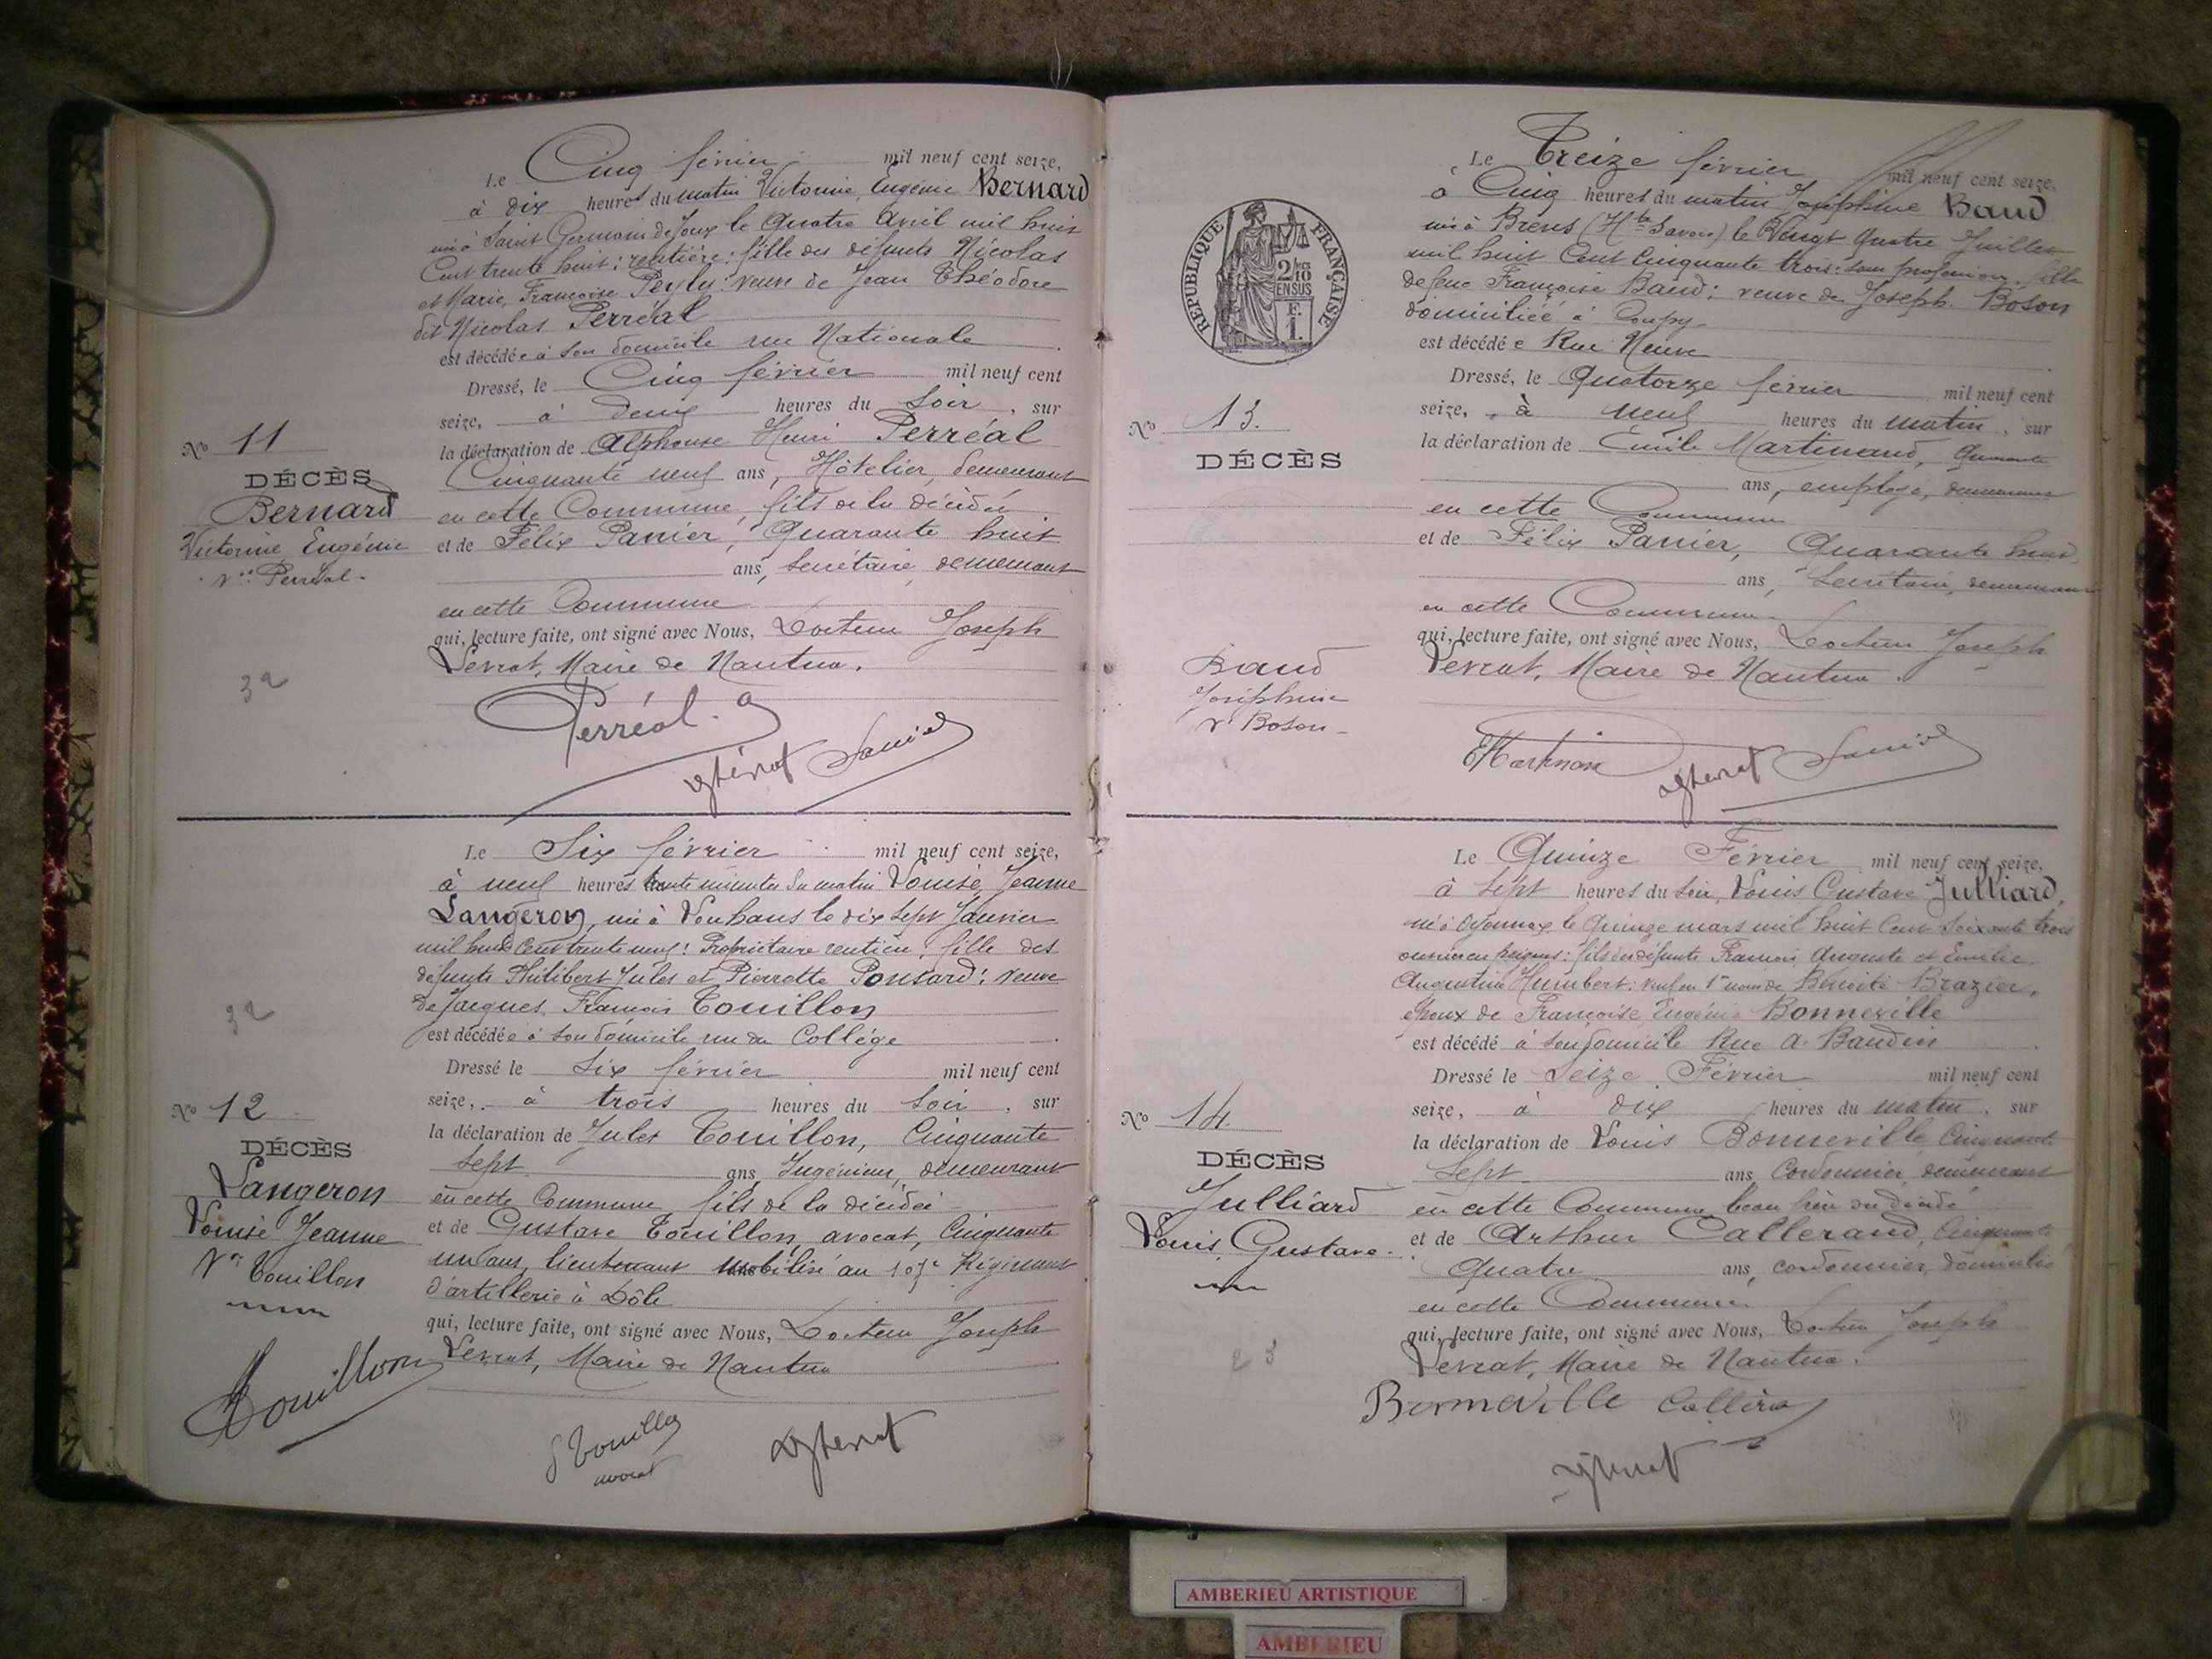 Le Cinq février mil neuf cent seize,
à dix heures du matin Victorine, Eugénie Bernard
née à Saint Germain de Joux le Quatre Avril mil huit
Cent trente huit : rentière : fille des défunts Nicolas
et Marie, Françoise : veuve de Jean Théodore
dit Nicolas Perréal
est décédée à son domicile rue Nationale
Dressé, le Cinq février mil neuf cent
seize, à Deux heures du Soir, sur
la déclaration de Alphonse Henri Perréal
Cinquante neuf ans, Hôtelier, demeurant
en cette Commune, fils de la décédée
et de Félix Panier, Quarante huit
ans, Secrétaire, demeurant
en cette Commune
qui, lecture faite, ont signé avec Nous, Docteur Joseph
Levrat, Maire de Nantua.
No 11
DÉCÈS
Bernard
Victorine Eugénie
Vve Perréal
32
Perréal
Le Six février mil neuf cent seize,
à neuf heures trente minutes du matin Louise, Jeanne
Langeron, née à Louhans le dix sept Janvier
mil huit cent trente neuf : Propriétaire rentière : fille des
défunts Philibert Jules et Pierrette Ponsard : veuve
de Jacques, François Touillon
est décédée à son domicile rue du Collège
Dressé le Six février mil neuf cent
seize, à trois heures du Soir, sur
la déclaration de Jules Touillon, Cinquante
Sept ans, Ingénieur, demeurant
en cette Commune fils de la décédée
et de Gustave Touillon, avocat, Cinquante
un ans, lieutenant mobilisé au Régiment
d'artillerie à Dôle
qui, lecture faite, ont signé avec Nous, Docteur Joseph
Levrat, Maire de Nantua
No 12
DÉCÈS
Langeron
Louise Jeanne
Vve Touillon
32
Touillon
G Touillon
avocat
Le Treize février mil neuf cent seize,
à Cinq heures du matin Joséphine Baud
née à Brens (Hte Savoie) le Vingt Quatre Juillet
mil huit Cent Cinquante trois : sans profession, fille
de feue Françoise Baud : veuve de Joseph Boson
domiciliée à Coupy
est décédée Rue Neuve
Dressé, le Quatorze février mil neuf cent
seize, à neuf heures du matin, sur
la déclaration de Emile Martinand, Quarante
ans, employé, demeurant
en cette Commune
et de Félix Panier, Quarante huit
ans, Secrétaire, demeurant
en cette Commune
qui, lecture faite, ont signé avec Nous, Docteur Joseph
Levrat, Maire de Nantua.
RÉPUBLIQUE FRANÇAISE
2/10 EN SUS
F. 1.
No 13.
DÉCÈS
Baud
Joséphine
Vve Boson
Le Quinze Février mil neuf cent seize,
à Sept heures du Soir, Louis Gustave Julliard,
né à Oyonnax le Quinze mars mil huit Cent Soixante trois
ouvrier en peignes : fils des défunts François Auguste et Emilie
Augustine Humbert : veuf en 1res noces de Benoite Brazier,
époux de Françoise Eugénie Bonneville
est décédé à son domicile Rue A. Baudin
Dressé le Seize Février mil neuf cent
seize, à dix heures du matin, sur
la déclaration de Louis Bonneville Cinquante
Sept ans Cordonnier, demeurant
en cette Commune beau frère du décédé
et de Arthur Callerand, Cinquante
Quatre ans, cordonnier, domicilié
en cette Commune
qui, lecture faite, ont signé avec Nous, Docteur Joseph
Levrat, Maire de Nantua.
No 14.
DÉCÈS
Julliard
Louis Gustave
Bonneville
AMBERIEU ARTISTIQUE
AMBERIEU